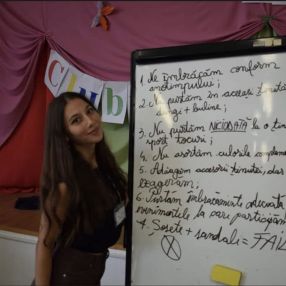 Club
1. Ne îmbrăcăm conform
anotimpului;
2. Nu purtăm în aceeași ținută
dungi + buline;
3. Nu purtăm NICIODATĂ la o
sport tocuri;
4. Nu asortăm culorile
5. Adăugăm accesorii ținutei, dar
6. Purtăm îmbrăcăminte adecvată
evenimentele la care participăm
7. Șosete + sandale = FAIL